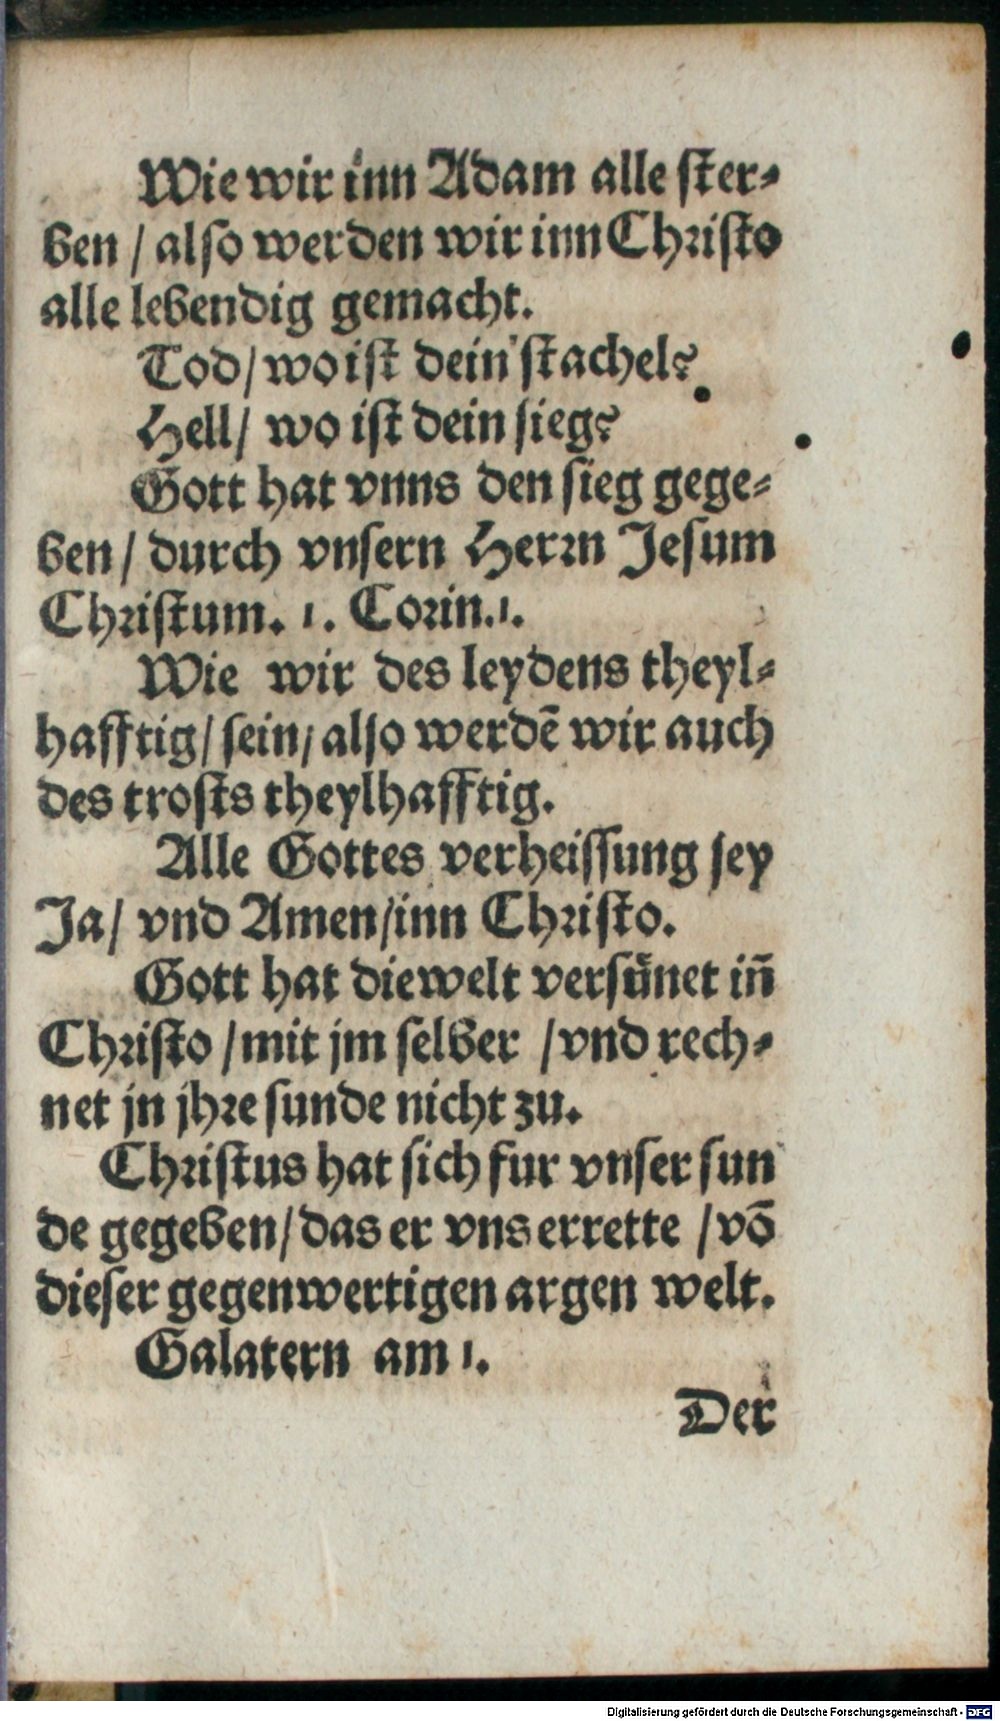 Wie wir inn Adam alle ster⸗
ben / also werden wir inn Christo
alle lebendig gemacht.
Tod / wo ist dein stachel?
Hell / wo ist dein sieg?
Gott hat vnns den sieg gege⸗
ben / durch vnsern Herrn Jesum
Christum. 1. Corin. 1.
Wie wir des leydens theyl⸗
hafftig / sein / also werdē wir auch
des trosts theylhafftig.
Alle Gottes verheissung sey
Ja / vnd Amen / inn Christo.
Gott hat die welt versünet in̄
Christo / mit jm selber / vnd rech⸗
net jn jhre sunde nicht zu.
Christus hat sich fur vnser sun
de gegeben / das er vns errette / vō
dieser gegenwertigen argen welt.
Galatern am 1.
Der
Digitalisierung gefördert durch die Deutsche Forschungsgemeinschaft - DFG